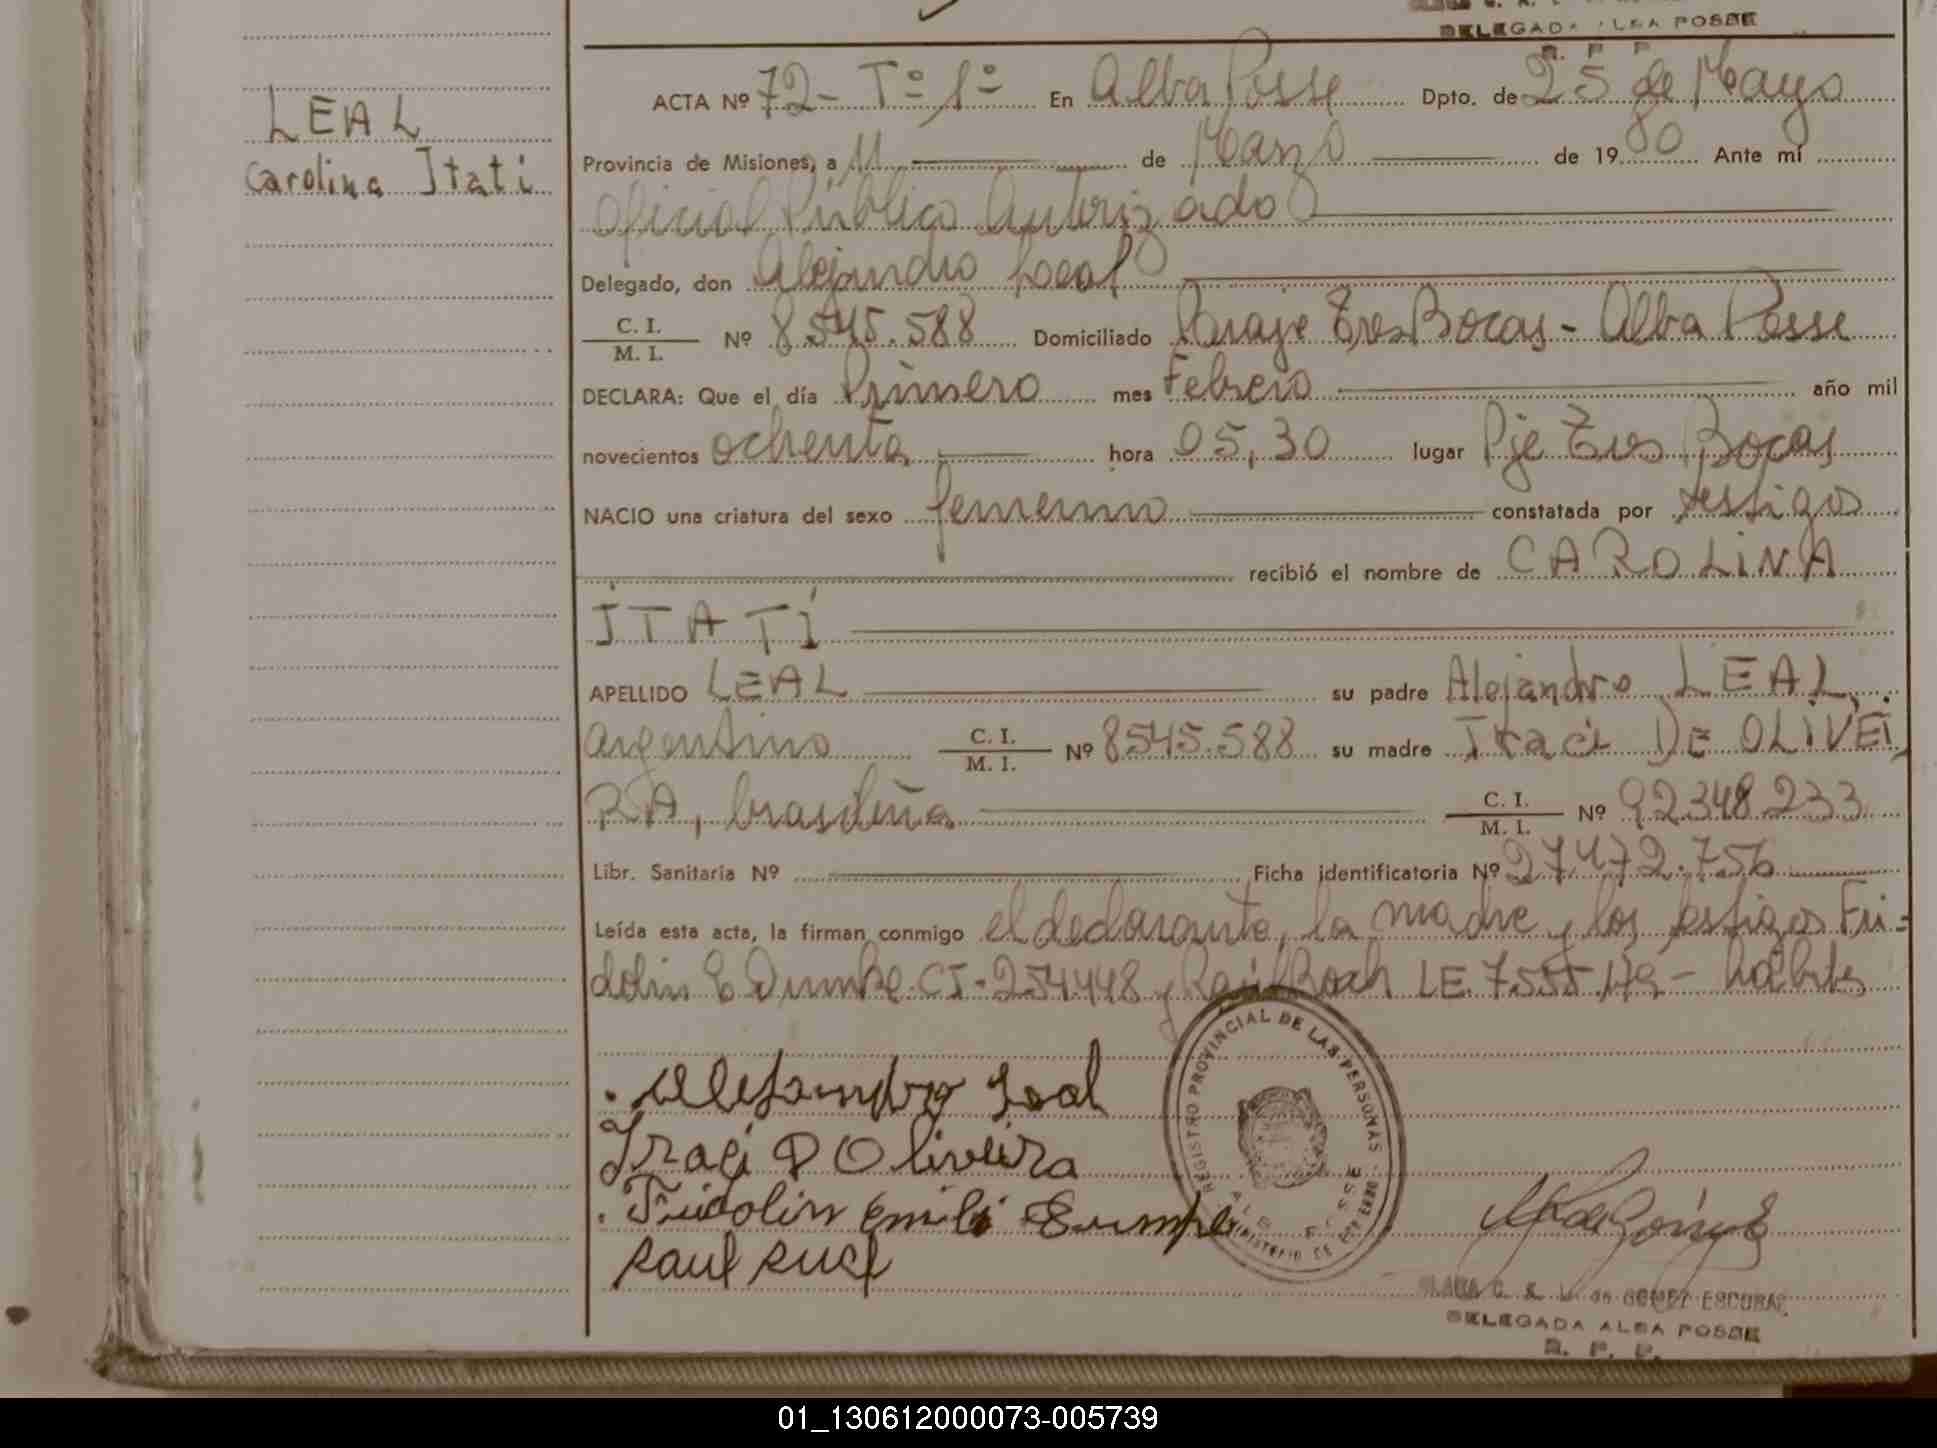 DELEGADA ALBA POSSE
R. P. P.
LEAL
Carolina Itati
ACTA Nº 72 - Tº 1º En Alba Posse Dpto. de 25 de Mayo
Provincia de Misiones, a 11 de Marzo de 1980 Ante mí
Oficial Público Autorizado
Delegado, don Alejandro Leal
C. I.
M. I. Nº 8545.588 Domiciliado Paraje Tres Bocas - Alba Posse
DECLARA: Que el día Primero mes Febrero año mil
novecientos ochenta hora 05,30 lugar Pje Tres Bocas
NACIO una criatura del sexo femenino constatada por testigos
recibió el nombre de CAROLINA
ITATÍ
APELLIDO LEAL su padre Alejandro LEAL,
argentino C. I. M. I. Nº 8545.588 su madre Iraci DE OLIVEI
RA, brasileña C. I. M. I. Nº 92348.233
Libr. Sanitaria Nº Ficha identificatoria Nº 27472.756
Leída esta acta, la firman conmigo el declarante, la madre y los testigos Fri-
dolin E CI-254448 y Raúl LE 7.555.
Alejandro Leal
Iraci D Oliveira
Fridolin Emilio
Raul
REGISTRO PROVINCIAL DE LAS PERSONAS
ALBA POSSE
MINISTERIO DE GOBIERNO
DE GOMEZ ESCOBAR
DELEGADA ALBA POSSE
R. P. P.
01_130612000073-005739